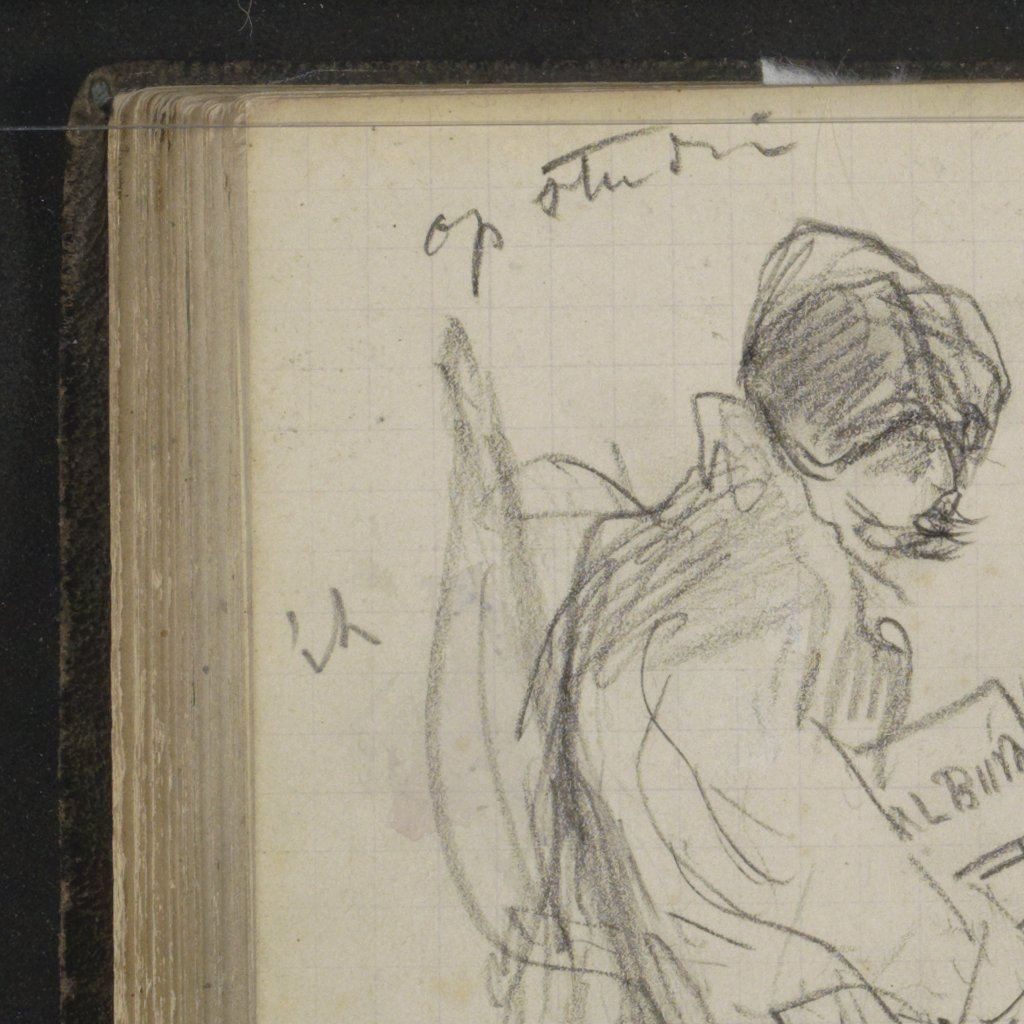 op studi
ik
ALBUM